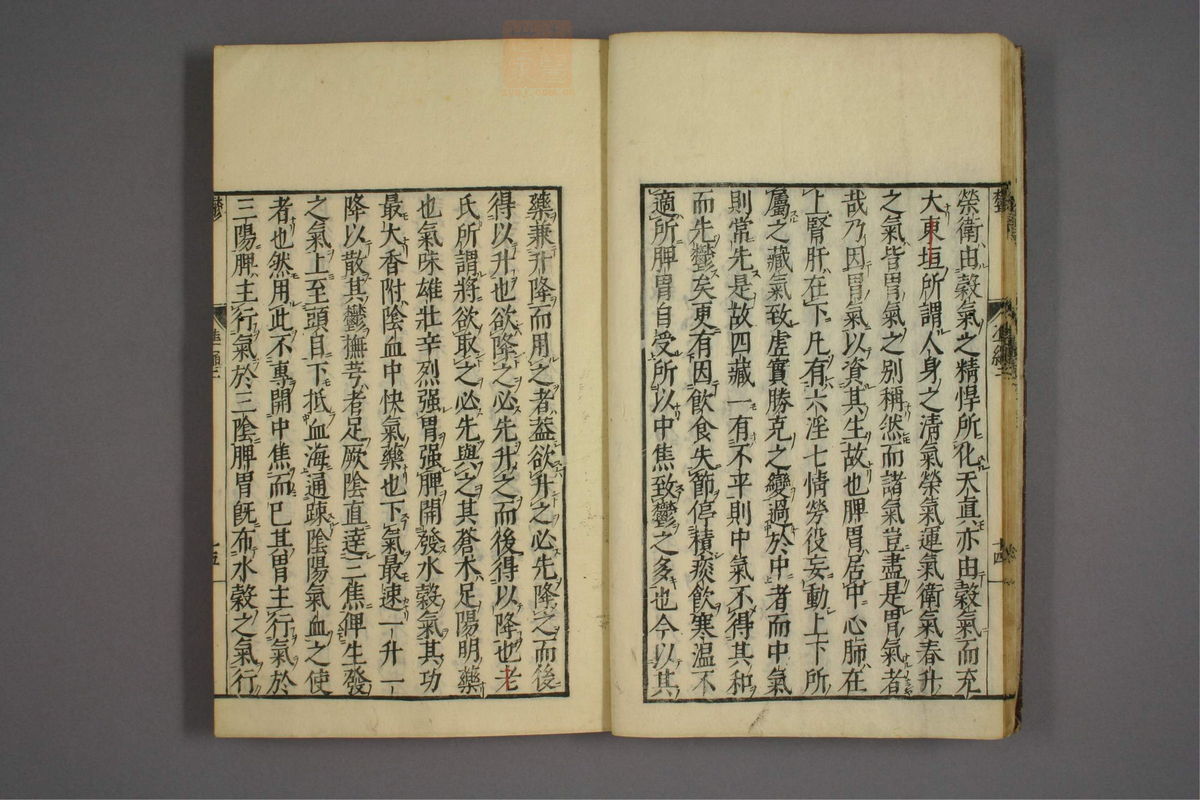 榮衛由穀氣之精悍所化天真亦由穀氣而充
大東垣所謂人身之清氣榮氣運氣衛氣春升
之氣皆胃氣之別稱然而諸氣豈盡是胃氣者
哉乃因胃氣以資其生故也脾胃居中心肺在
上腎肝在下凡有六淫七情勞役妄動上下所
屬之藏氣致虛實勝克之變過於中者而中氣
則常先是故四藏一有不平則中氣不得其和
而先鬱矣更有因飲食失節停積痰飲寒温不
適所脾胃自受所以中焦致鬱之多也今以其
藥兼升降而用之者葢欲升之必先降之而後
得以升也欲降之必先升之而後得以降也老
氏所謂將欲取之必先與之其蒼术足陽明藥
也氣味雄壯辛烈强胃强脾開發水穀氣其功
最大香附陰血中快氣藥也下氣最速一升一
降以散其鬱撫芎者足厥陰直達三焦俾生發
之氣上至頭目下抵血海通踈陰陽氣血之使
者也然用此不專開中焦而已其胃主行氣於
三陽脾主行氣於三陰脾胃旣布水穀之氣行
鬱
十五
鬱
十四